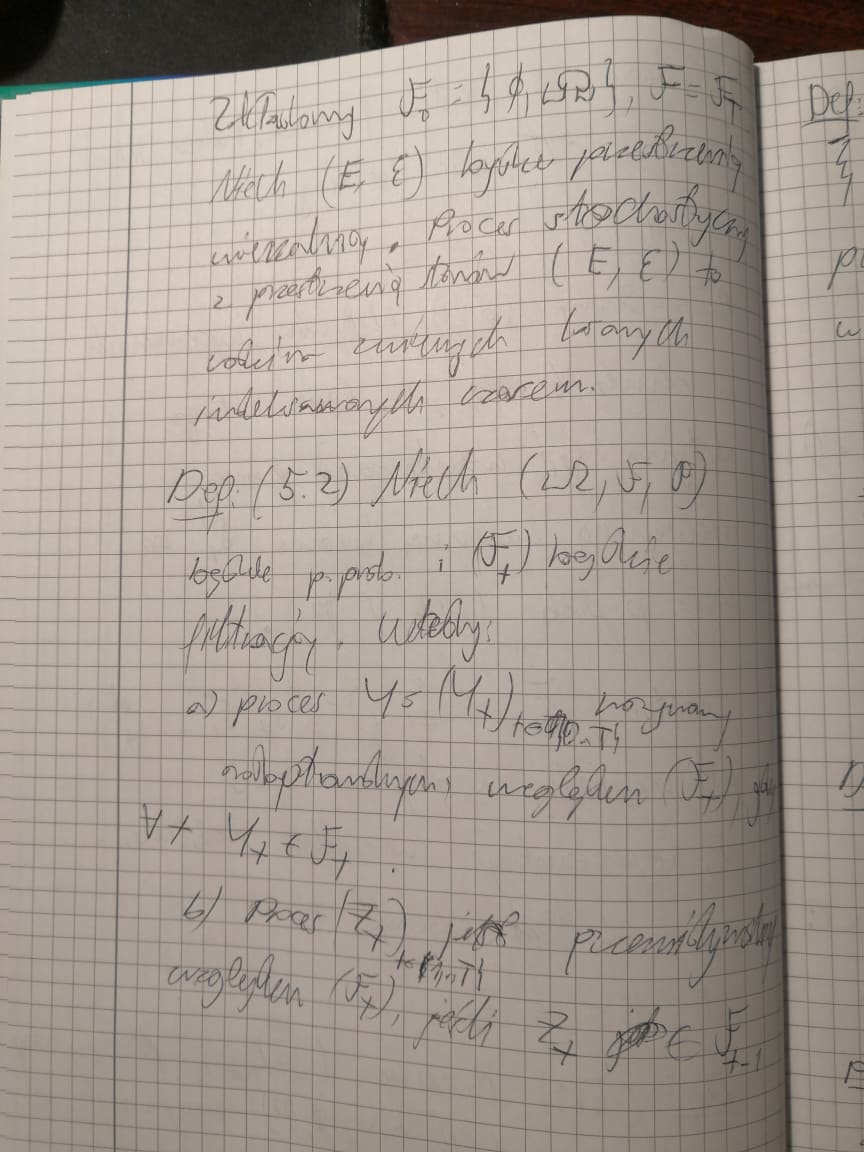 Zakładamy F_0 = {∅, Ω}, F = F_T
Niech (E, ℰ) będzie przestrzenią
mierzalną. Proces stochastyczny
z przestrzenią stanów (E, ℰ) to
rodzina zmiennych losowych
indeksowanych czasem.
Def: (5.2) Niech (Ω, F, P)
będzie p. prob. i (F_t) będzie
filtracją. Wtedy:
a) proces Y = (Y_t)_{t∈{0..T}} nazywamy
adaptowanym względem (F_t), gdy
∀t Y_t ∈ F_t.
b) Proces (Z_t)_{t∈{1..T}} jest przewidywalny
względem (F_t), jeśli Z_t ∈ F_{t-1}
Def: